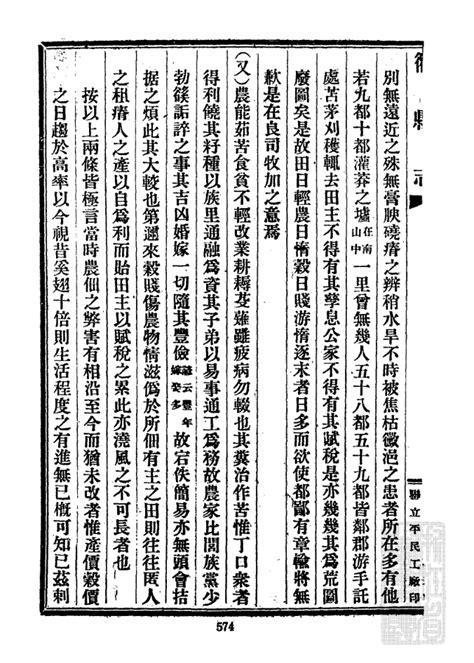 衢縣志
別無遠近之殊無膏腴磽瘠之辨稍水旱不時被焦枯黴邑之患者所在多有他
若九都十都灌莽之墟在南山中一里曾無幾人五十八都五十九都皆鄰郡游手託
處苦茅刈穫輒去田主不得有其孳息公家不得有其賦稅是亦幾幾其爲荒圖
廢圖矣是故田日輕農日惰穀日賤游惰逐末者日多而欲使都鄙有章輸將無
歉是在良司牧加之意焉
(又)農能茹苦食貧不輕改業耕耨芟薙雖疲病勿輟也其糞治作苦惟丁口衆者
得利饒其籽種以族里通融爲資其子弟以易事通工爲務故農家比閭族黨少
勃谿詬誶之事其吉凶婚嫁一切隨其豐儉諺云豐年嫁娶多故宕佚簡易亦無頭會拮
据之煩此其大較也第邇來穀賤傷農物情滋僞於所佃有主之田則往往匿人
之租瘠人之產以自爲利而貽田主以賦稅之累此亦澆風之不可長者也
按以上兩條皆極言當時農佃之弊害有相沿至今而猶未改者惟產價穀價
之日趨於高率以今視昔奚翅十倍則生活程度之有進無已概可知已茲刺
聯立平民工廠印
574